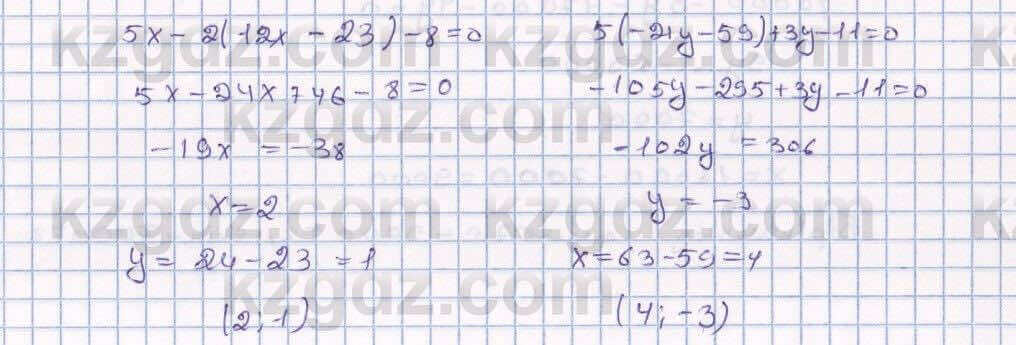 5x - 2(12x - 23) - 8 = 0
5x - 24x + 46 - 8 = 0
-19x = -38
x = 2
y = 24 - 23 = 1
(2; 1)
5(-21y - 59) + 3y - 11 = 0
-105y - 295 + 3y - 11 = 0
-102y = 306
y = -3
x = 63 - 59 = 4
(4; -3)
kzgdz.com